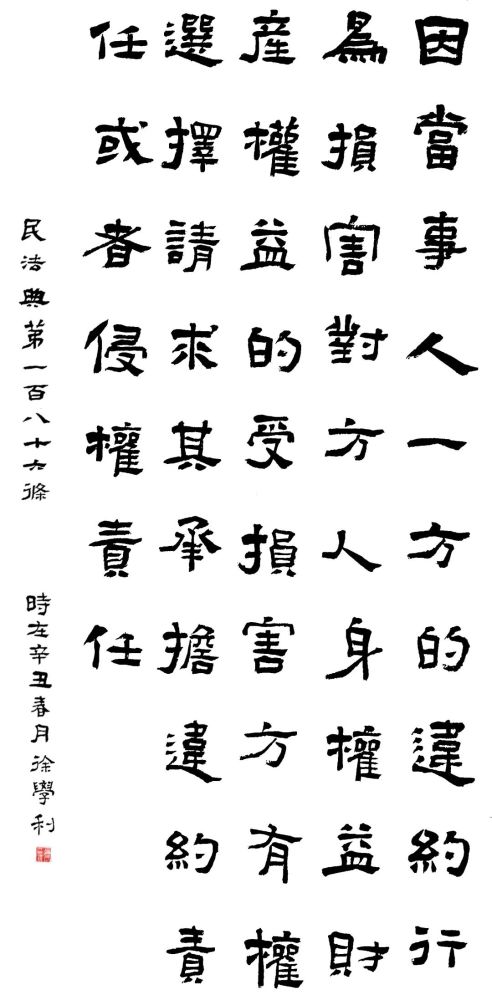 因當事人一方的違約行
為損害對方人身權益財
產權益的受損害方有權
選擇請求其承擔違約責
任或者侵權責任
民法典第一百八十六條
時在辛丑春月徐學利